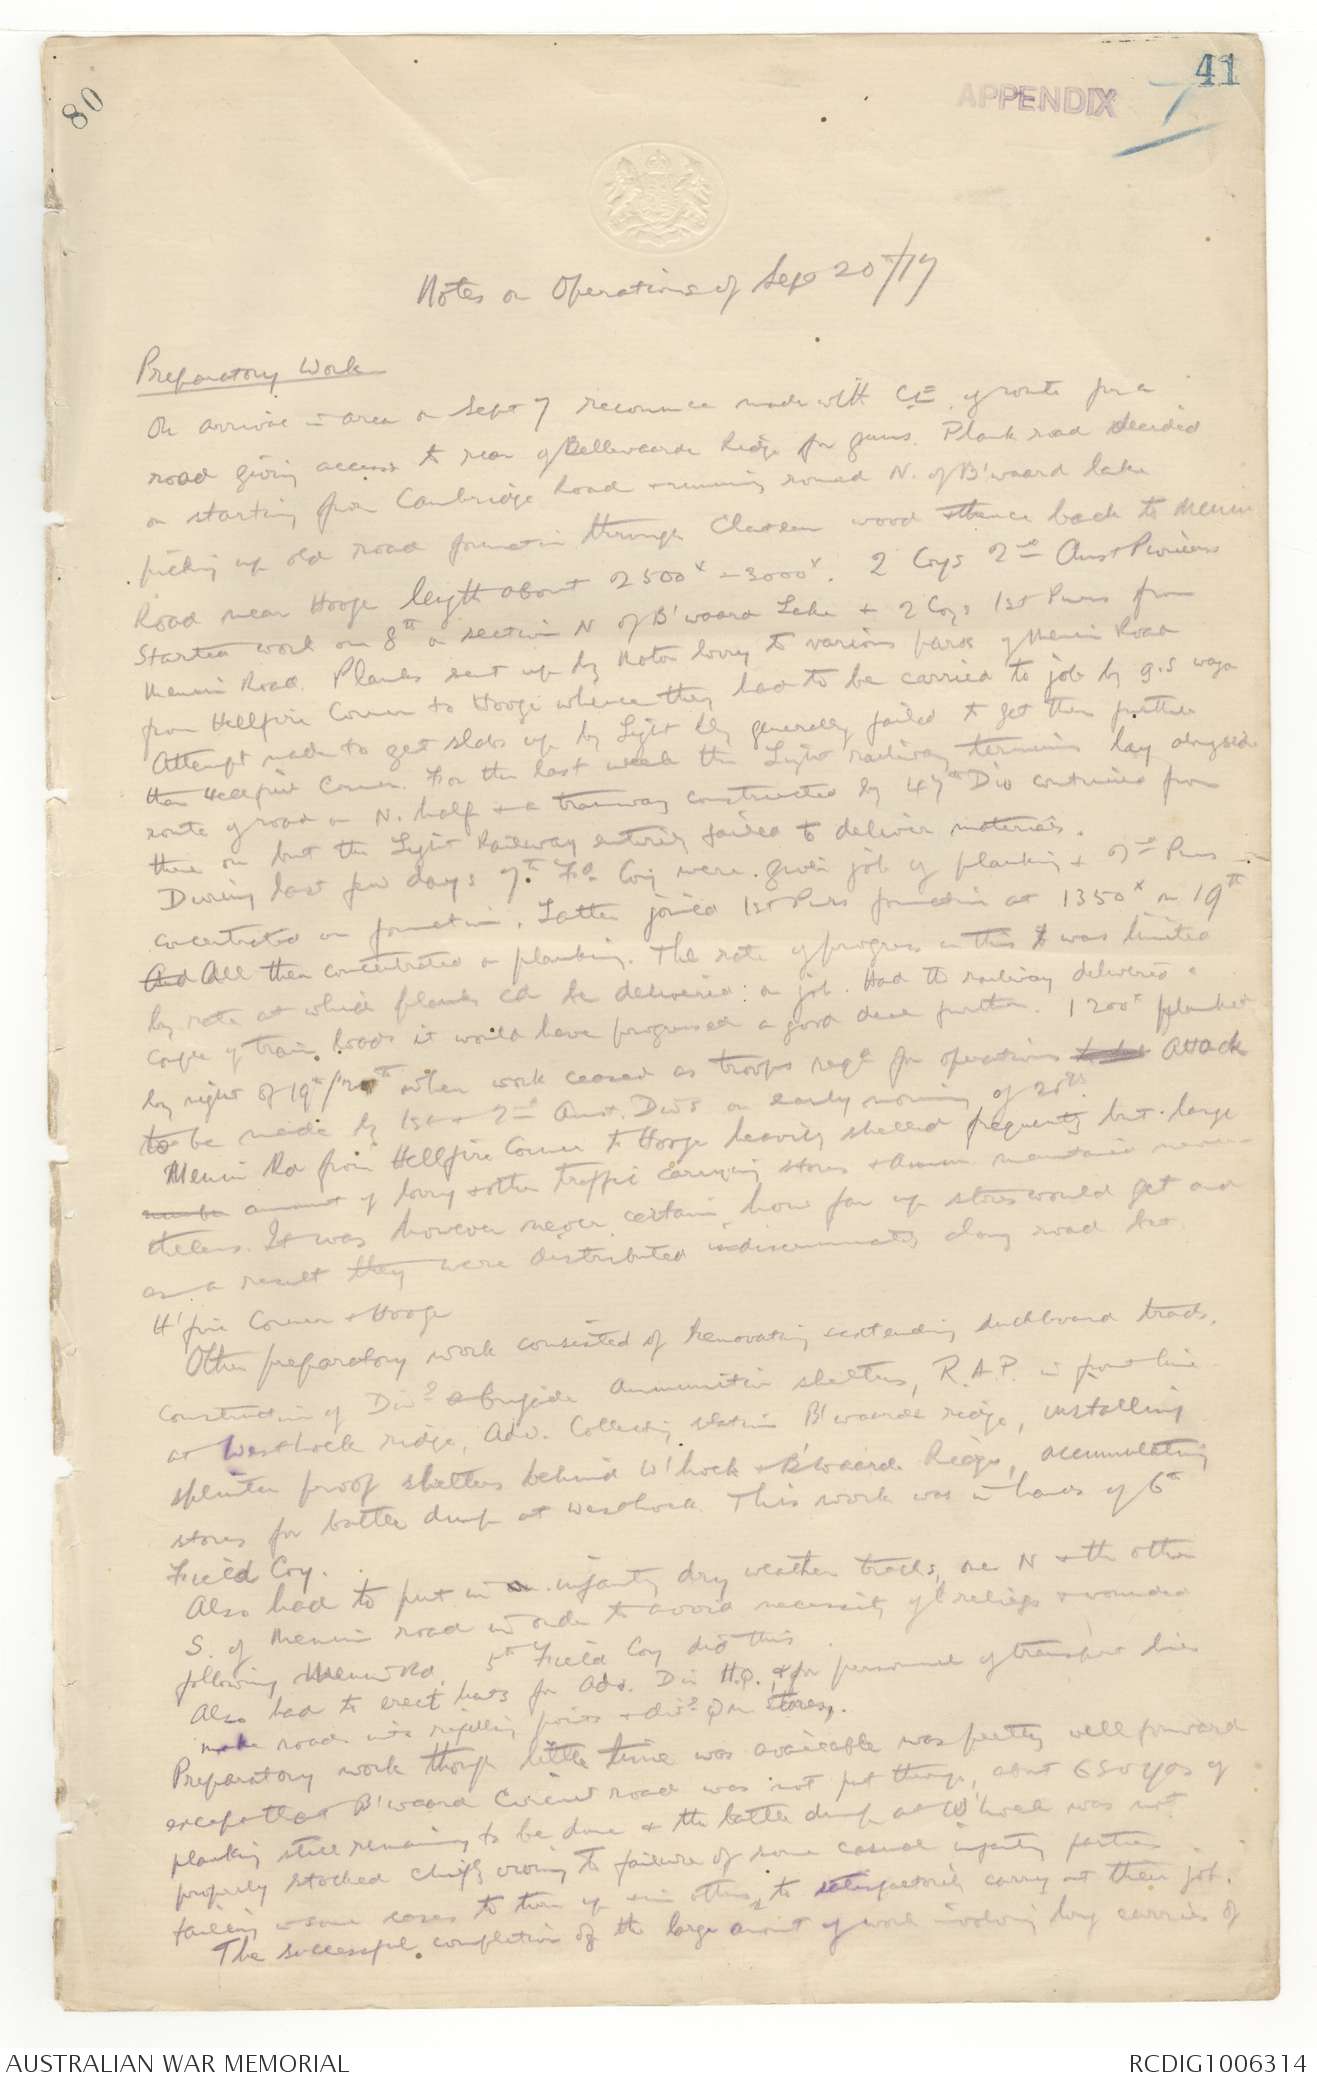 41
80
APPENDIX
Notes on Operations of Sept 20th/17
Preparatory Work
On arrival in area on Sept 7 reconnce made with CE of route for a
road giving access to rear of Bellewaarde Ridge for guns. Plank road decided
on starting from Cambridge Road & running round N. of B'waard lake
picking up old road formation through Chateau wood & thence back to Menin
Road near Hooge length about 2500x - 3000x. 2 Coys 2nd Aust Pioneers
Started work on 8th on section N of B'waard Lake & 2 Coys 1st Pnrs from
Menin Road. Planks sent up by Motor lorry to various parts of Menin Road
from Hellfire Corner to Hooge whence they had to be carried to job by g.s wagon
Attempt made to get slabs up by Light Rly generally failed to get them further
than Hellfire Corner. For the last week the Light railway terminus lay alongside
route of road on N. half & a tramway constructed by 47th Div continued from
there on but the Light Railway entirely failed to deliver materials.
During last few days 7th Fd. Coy were given job of planking & 2nd Pnrs
concentrated on formation. Latter joined 1st Pnrs formation at 1350x on 19th
And All then concentrated on planking. The rate of progress on this was limited
by rate at which planks cd be delivered on job. Had the railway delivered a
couple of train loads it would have progressed a good deal further. 1200x planked
by night of 19th/20th when work ceased as troops reqd for operations Attack
to be made by 1st & 2nd Aust. Divs on early morning of 20th.
Menin Rd from Hellfire Corner to Hooge heavily shelled frequently but large
amount of lorry & other traffic carrying stores & Ammn maintained never-
theless. It was however never certain how far up stores would get and
as a result they were distributed indiscriminately along road bet.
H'fire Corner & Hooge
Other preparatory work consisted of renovating extending duckboard tracks,
construction of Divl & brigade Ammunition shelters, R.A.P. in front line
at Westhoek ridge, Adv. Collecting station B'waarde ridge, installing
splinter proof shelters behind W'hoek & B'waarde Ridge, accumulating
stores for battle dump at Westhoek. This work was in hands of 6th
Field Coy.
Also had to put in infantry dry weather tracks, one N & the other
S. of Menin road in order to avoid necessity of reliefs & wounded
following Menin Rd. 5th Field Coy did this
Also had to erect huts for Adv. Div H.Q., & for personnel of transport lines
make roads into refilling points & divl stores.
Preparatory work though little time was available was pretty well forward
except that B'waard Circuit road was not put through, about 650 yds of
planking still remaining to be done & the battle dump at W'hoek was not
properly stocked chiefly owing to failure of some casual infantry parties
failing in some cases to turn up & in others to satisfactorily carry out their job.
The successful completion of the large amount of work involving long carries of
AUSTRALIAN WAR MEMORIAL
RCDIG1006314